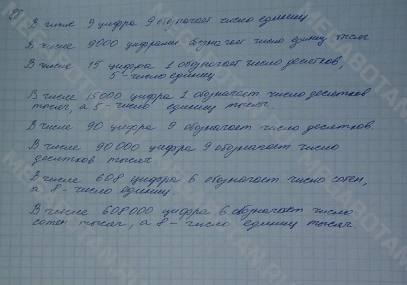 В числе 9 цифра 9 обозначает число единиц
В числе 9000 цифра обозначает число единиц тысяч
В числе 15 цифра 1 обозначает число десятков,
5 - число единиц
В числе 15000 цифра 1 обозначает число десятков
тысяч, а 5 - число единиц тысяч.
В числе 90 цифра 9 обозначает число десятков.
В числе 90 000 цифра 9 обозначает число
десятков тысяч
В числе 608 цифра 6 обозначает число сотен,
а 8 - число единиц.
В числе 608 000 цифра 6 обозначает число
сотен тысяч, а 8 - число единиц тысяч